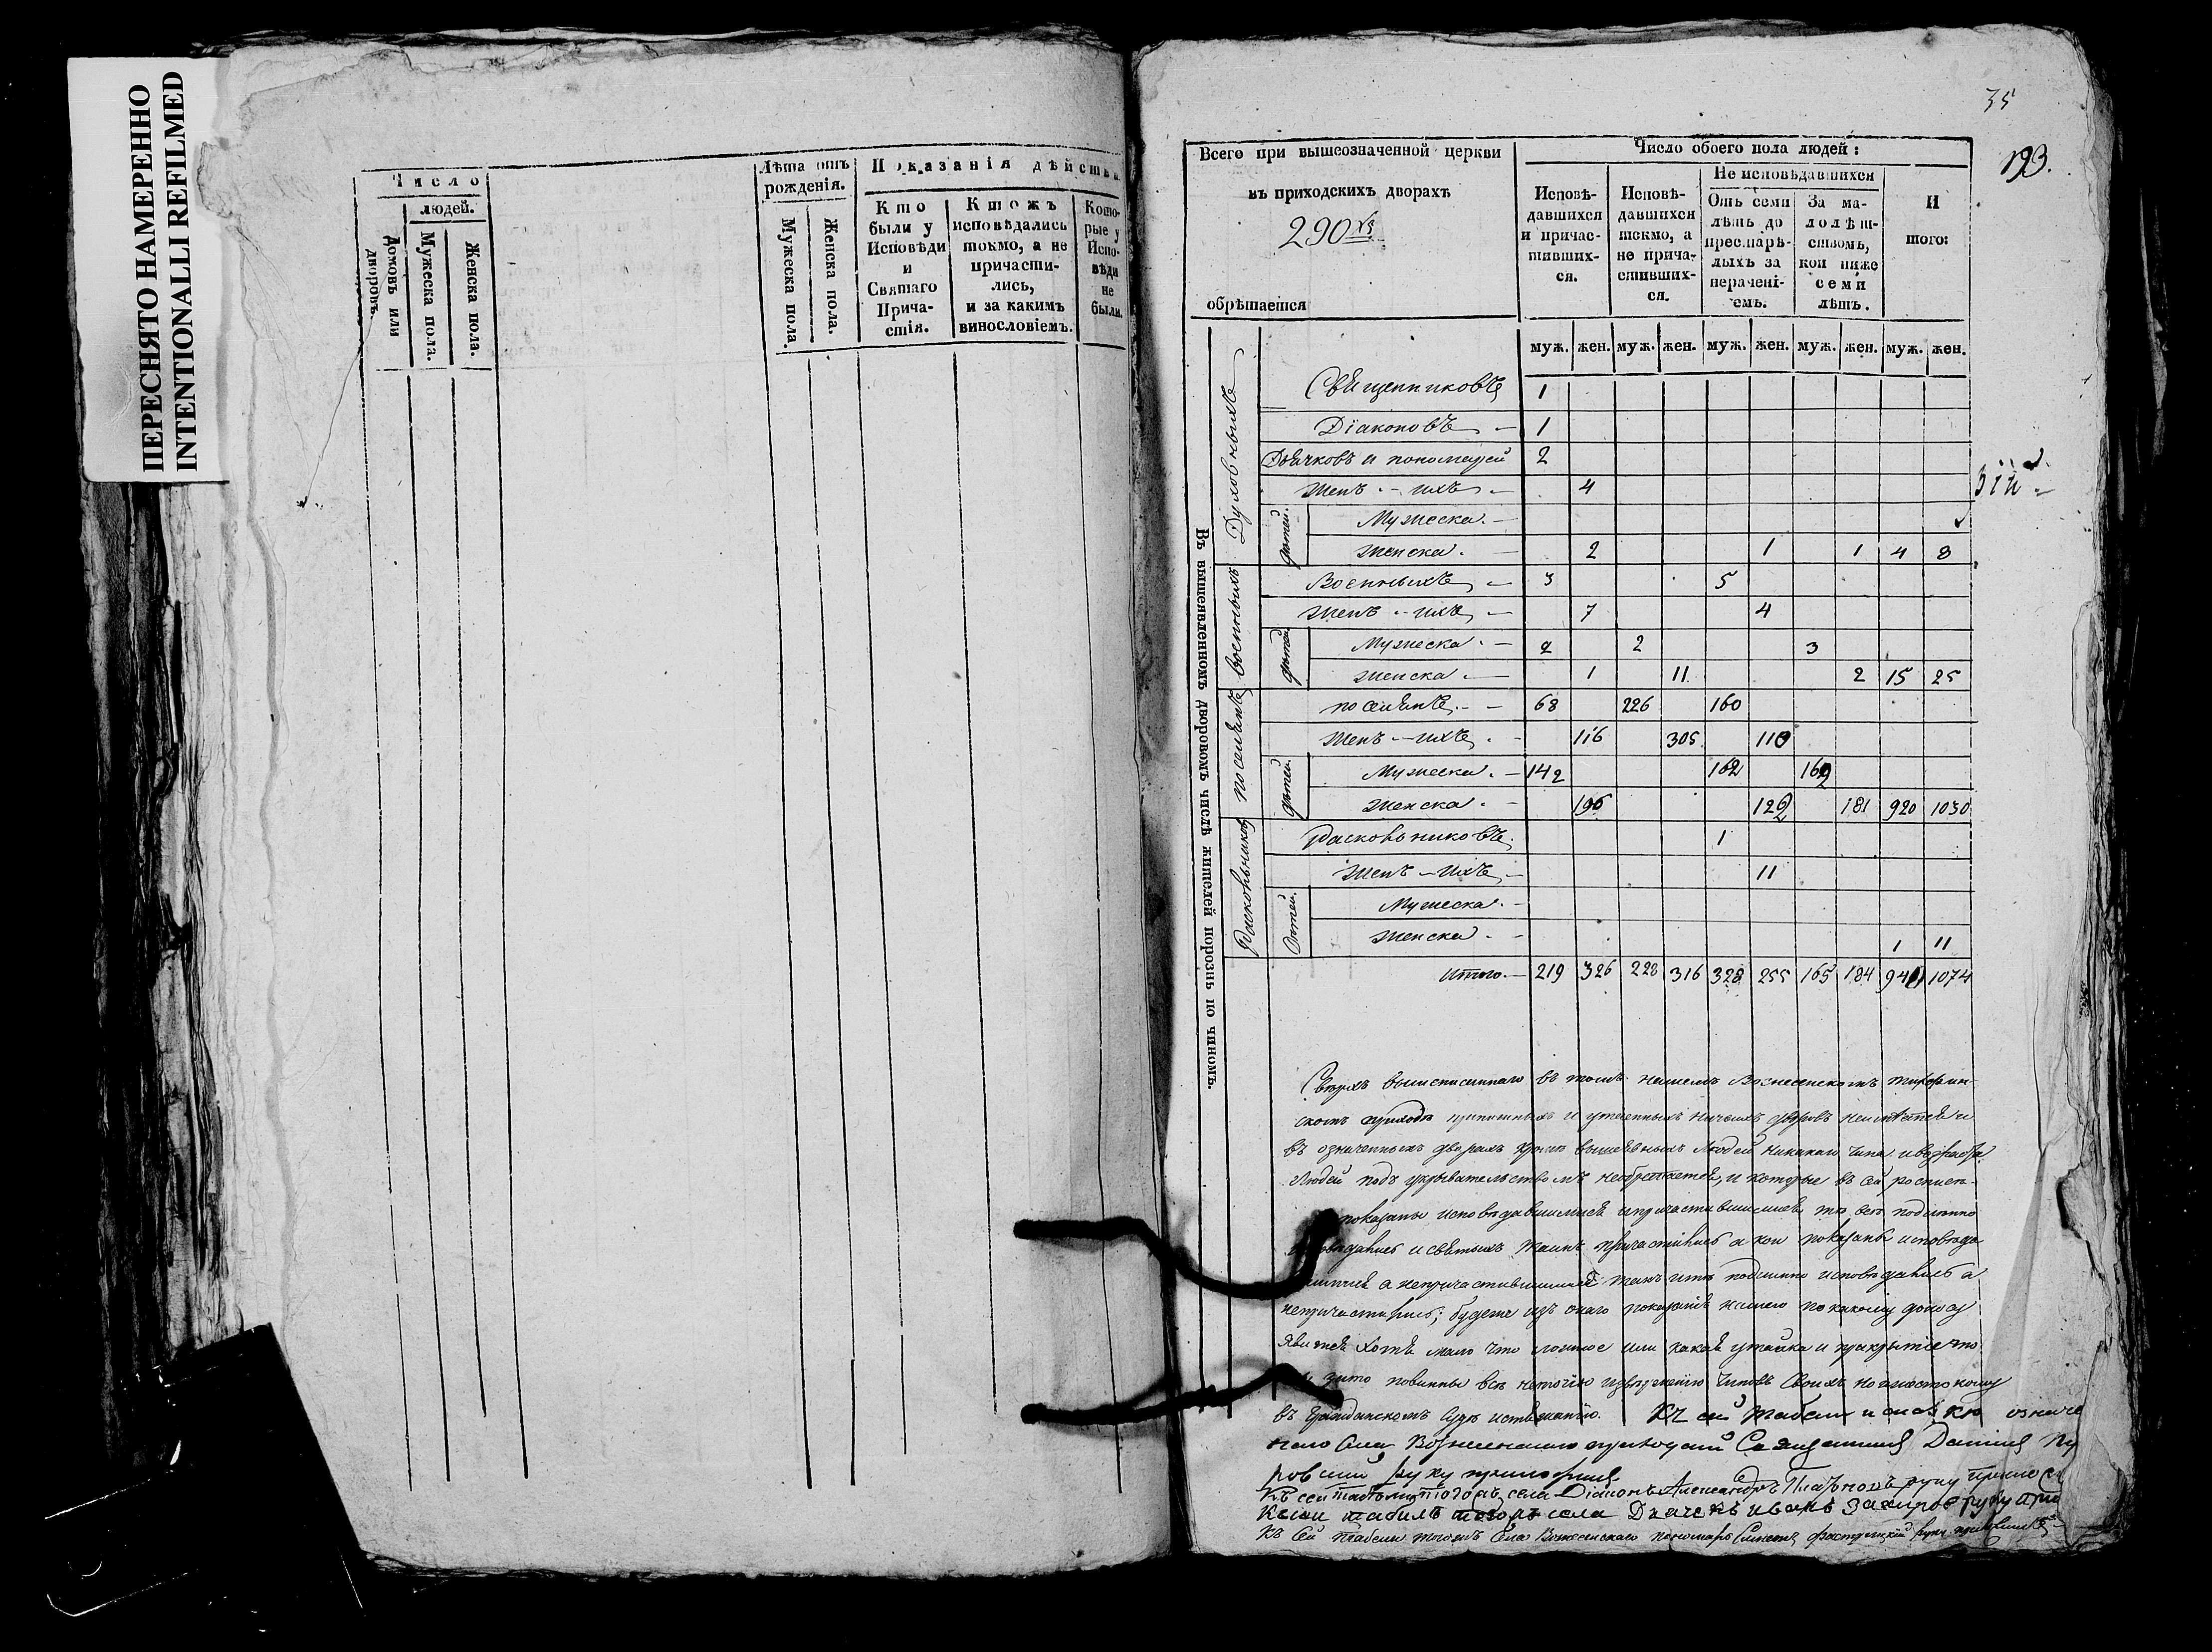 ПЕРЕСНЯТО НАМЕРЕННО
INTENTIONALLI REFILMED
Число
людей.
Домовъ или дворовъ.
Мужеска пола.
Женска пола.
Лѣта отъ рожденія.
Мужеска пола.
Женска пола.
Показанія дѣйства
Кто были у Исповѣди и Святаго Причастія.
Кто жъ исповѣдались токмо, а не причастились, и за какимъ винословіемъ.
Которые у Исповѣди не были.
35
193.
Всего при вышеозначенной церкви
въ приходскихъ дворахъ
290
обрѣтается
Число обоего пола людей:
Исповѣдавшихся и причастившихся.
Исповѣдавшихся токмо, а не причастившихся.
Не исповѣдавшихся
Отъ семи лѣтъ до престарѣлыхъ за нераченіемъ.
За малолѣтствомъ, кои ниже семи лѣтъ.
Итого:
муж. жен. муж. жен. муж. жен. муж. жен. муж. жен.
Въ вышеявленномъ дворовомъ числѣ жителей порознь по чиномъ.
Духовныхъ
Священниковъ 1
Діаконовъ 1
Дьячковъ и пономарей 2
Женъ ихъ 4
дѣтей.
Мужеска
Женска 2 1 1 4 8
военныхъ
Военныхъ 3 5
Женъ ихъ 7 4
дѣтей
Мужеска 2 2 3
Женска 1 11 2 15 25
поселянъ
поселянъ 68 226 160
Женъ ихъ 116 305 110
дѣтей.
Мужеска 142 162 162
Женска 196 129 181 920 1030
Раскольниковъ
Раскольниковъ 1
Женъ ихъ 11
Дѣтей.
Мужеска
Женска 1 11
Итого 219 326 228 316 328 255 165 184 940 1074
Сверхъ вышеписаннаго въ томъ нашемъ Вознесенскомъ
скомъ приходѣ и утаенныхъ ничьихъ дворовъ неимѣется и
въ означенныхъ дворахъ кромѣ вышеявленныхъ людей никакого чина и возраста
людей подъ укрывательствомъ необрѣтается, и которые въ сей росписи
показаны исповѣдавшимися и причастившимися тѣ всѣ подлинно
исповѣдались и святыхъ Таинъ причастились а кои показаны исповѣда
вшимися а непричастившимися тѣ подлинно исповѣдались а
непричастились; будетъ изъ онаго показанія нашего по какому доносу
явится хотя мало что ложное или какая утайка и прикрытіе то
за то повинны всѣ неточію изверженію чиновъ своихъ но и жестокому
въ гражданскомъ судѣ истязанію. Къ сей табели означе
ннаго села Вознесенскаго Священникъ Даніилъ
ровскій руку приложилъ
Къ сей табели того села Діаконъ Александръ руку приложилъ
Къ сей табели села Дьячекъ Иванъ Захаровъ руку при
Къ сей табели тогожъ села Вознесенскаго пономарь руку приложилъ